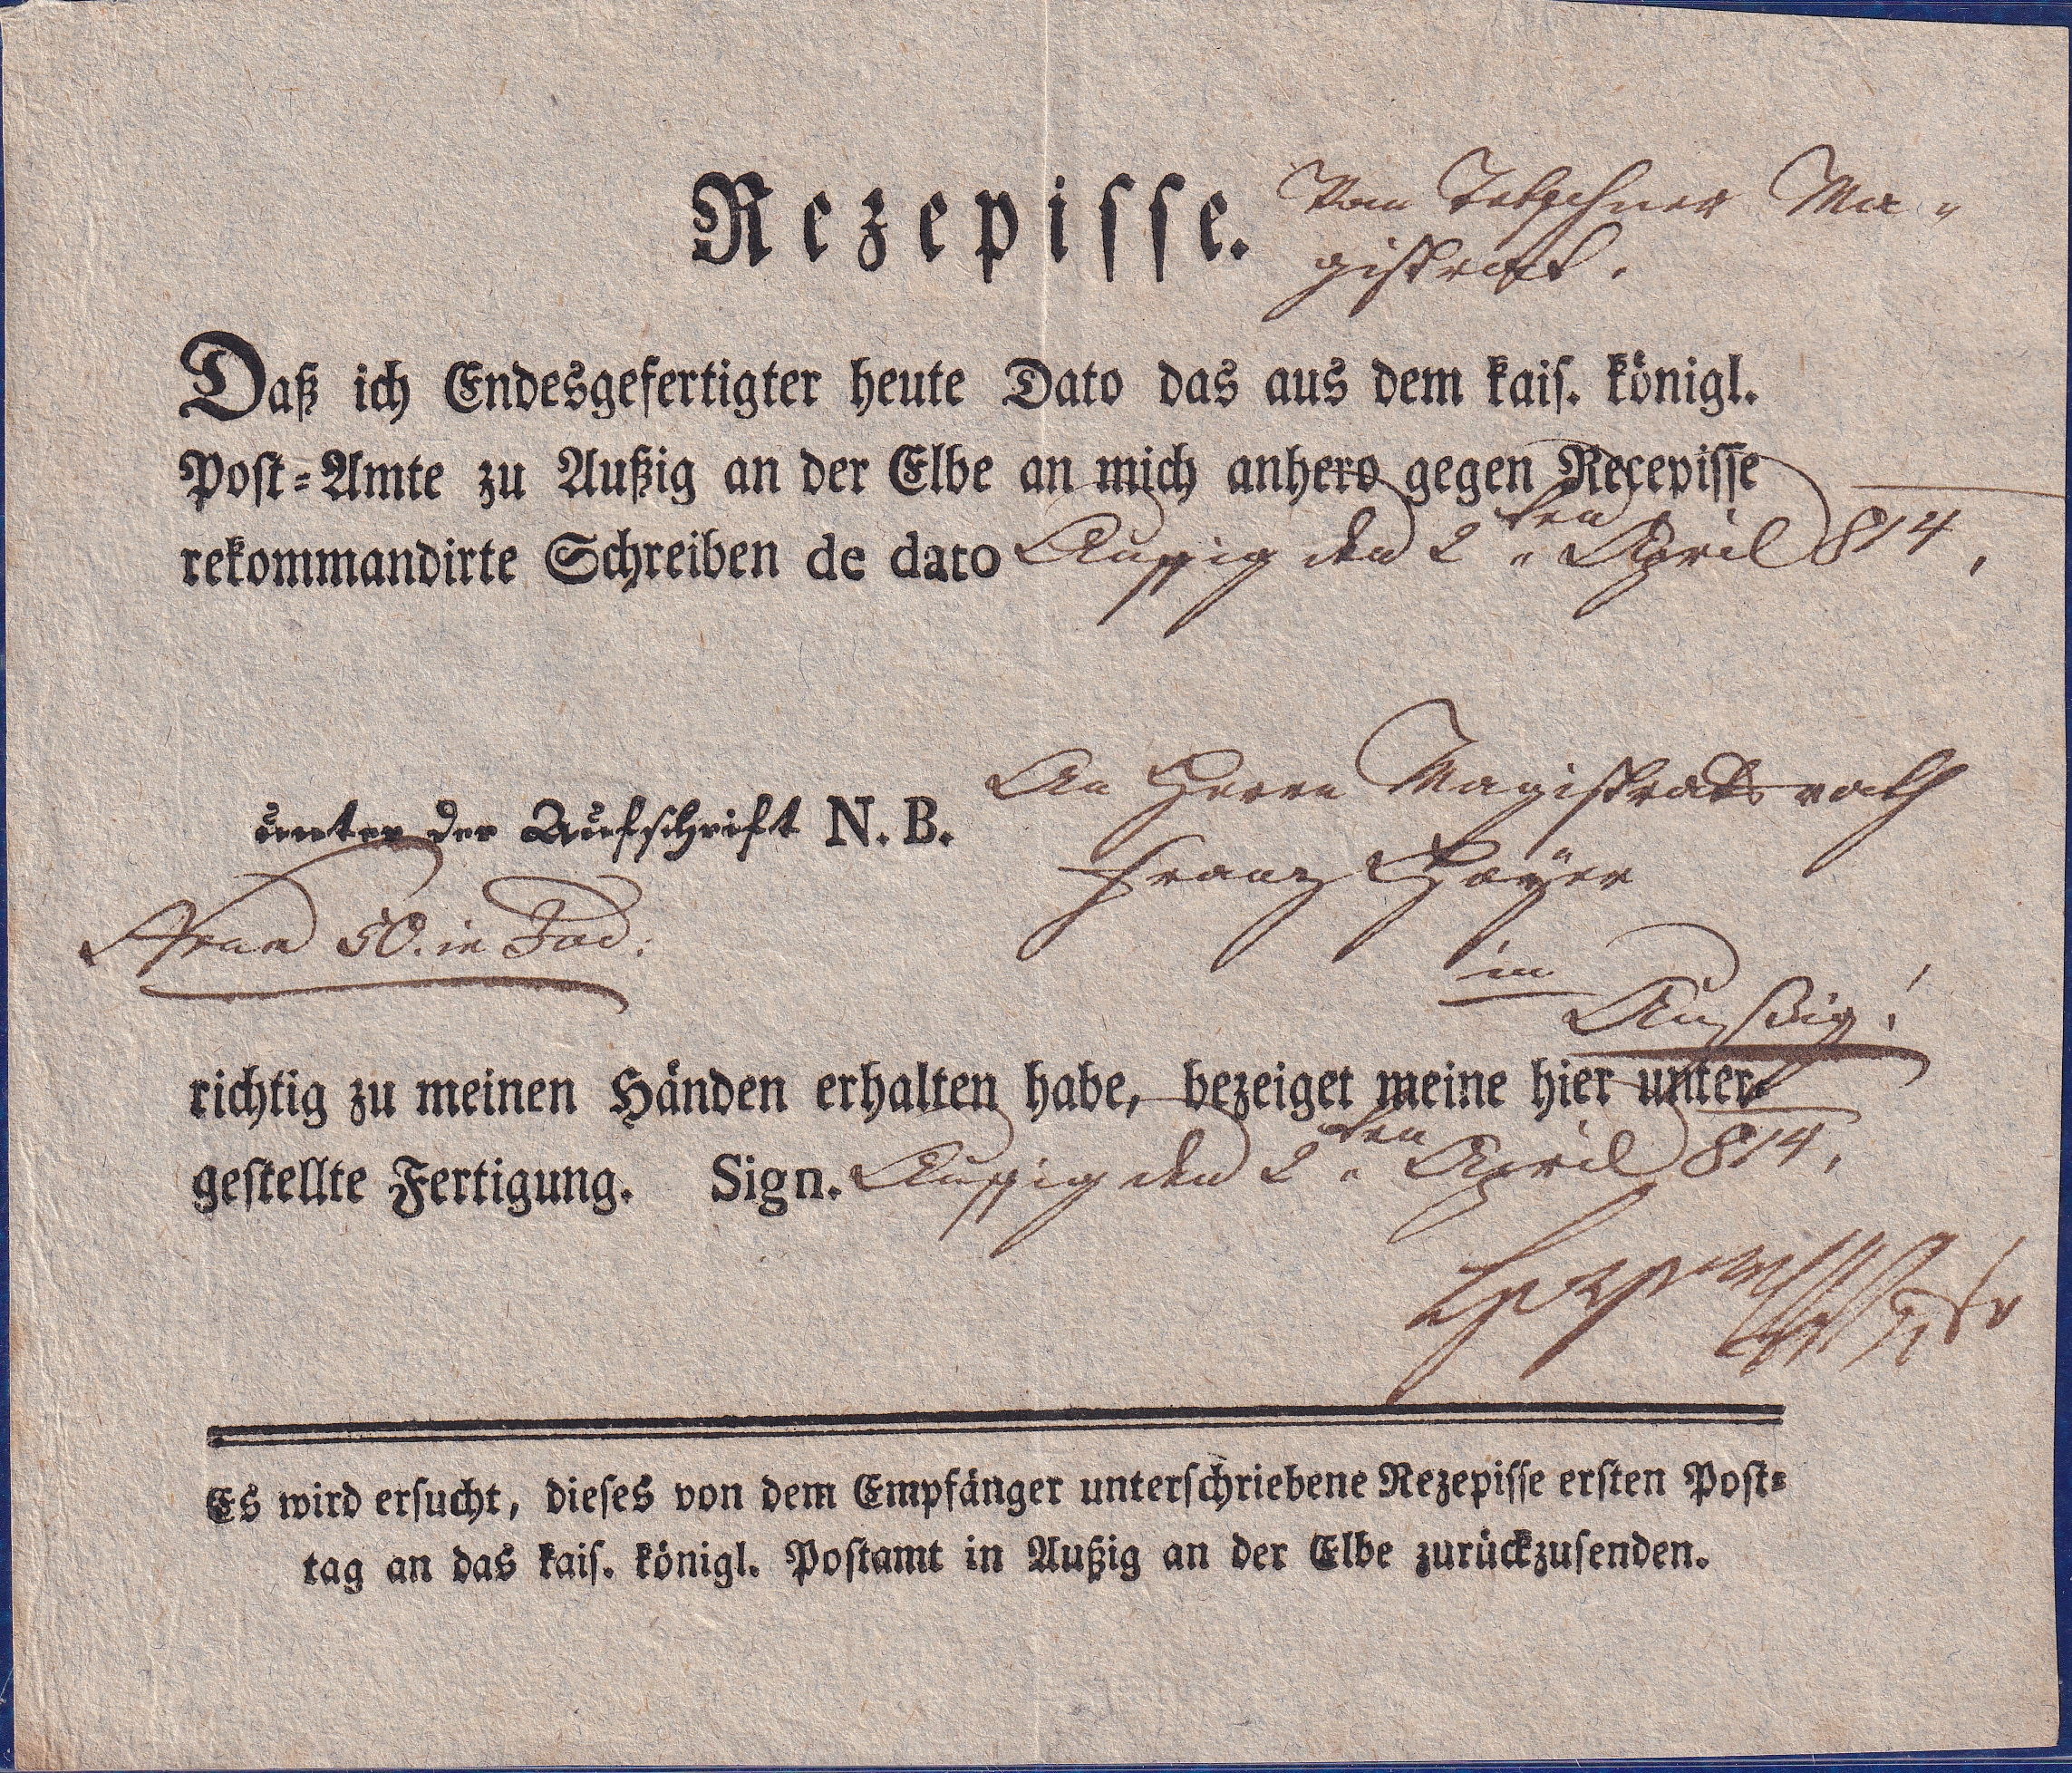 Rezepisse. Vom Tetschner Ma-
gistrat.
Daß ich Endesgefertigter heute Dato das aus dem kais. königl.
Post-Amte zu Außig an der Elbe an mich anhero gegen Recepisse
rekommandirte Schreiben de dato Aussig den 2ten April 814.
unter der Aufschrift N. B. An Herrn Magistratsrath
Franz
in
Außig!
50. in
richtig zu meinen Händen erhalten habe, bezeiget meine hier unter-
gestellte Fertigung. Sign. Aussig den 2ten April 814.
Es wird ersucht, dieses von dem Empfänger unterschriebene Rezepisse ersten Post-
tag an das kais. königl. Postamt in Außig an der Elbe zurückzusenden.